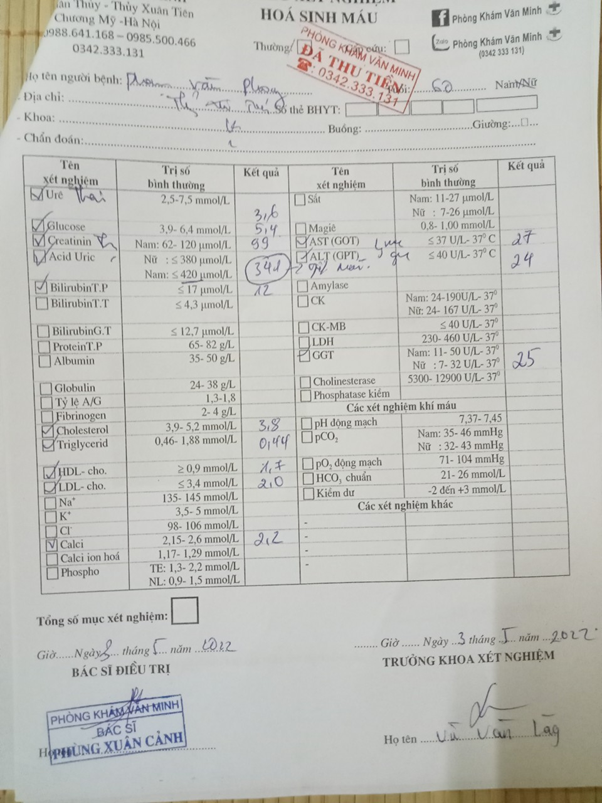 Thủy - Thủy Xuân Tiên
Chương Mỹ -Hà Nội
0988.641.168 – 0985.500.466
0342.333.131
HOÁ SINH MÁU
Thường/ cấp cứu:
Phòng Khám Văn Minh
Phòng Khám Văn Minh
(0342 333 131)
PHÒNG KHÁM VĂN MINH
ĐÃ THU TIỀN
☎: 0342.333.131
Họ tên người bệnh: văn 60 Nam/Nữ
- Địa chỉ: Số thẻ BHYT:
- Khoa: Buồng: Giường:
- Chẩn đoán:
Tên xét nghiệm Trị số bình thường Kết quả Tên xét nghiệm Trị số bình thường Kết quả
Urê 2,5-7,5 mmol/L 3,6 Sắt Nam: 11-27 µmol/L
Nữ : 7-26 µmol/L
Glucose 3,9- 6,4 mmol/L 5,4 Magiê 0,8- 1,00 mmol/L
Creatinin Nam: 62- 120 µmol/L 99 AST (GOT) ≤ 37 U/L- 37⁰ C 27
Acid Uric Nữ : ≤ 380 µmol/L ALT (GPT) ≤ 40 U/L- 37⁰ C 24
Nam: ≤ 420 µmol/L 341 Amylase
BilirubinT.P ≤ 17 µmol/L 12 CK Nam: 24-190U/L- 37⁰
BilirubinT.T ≤ 4,3 µmol/L Nữ: 24- 167 U/L- 37⁰
CK-MB ≤ 40 U/L- 37⁰
BilirubinG.T ≤ 12,7 µmol/L LDH 230- 460 U/L- 37⁰
ProteinT.P 65- 82 g/L GGT Nam: 11- 50 U/L- 37⁰ 25
Albumin 35- 50 g/L Nữ : 7- 32 U/L- 37⁰
Cholinesterase 5300- 12900 U/L- 37⁰
Globulin 24- 38 g/L Phosphatase kiềm
Tỷ lệ A/G 1,3-1,8 Các xét nghiệm khí máu
Fibrinogen 2- 4 g/L pH động mạch 7,37- 7,45
Cholesterol 3,9- 5,2 mmol/L 3,8 pCO₂ Nam: 35- 46 mmHg
Triglycerid 0,46- 1,88 mmol/L 0,44 Nữ : 32- 43 mmHg
pO₂ động mạch 71- 104 mmHg
HDL- cho. ≥ 0,9 mmol/L 1,7 HCO₃ chuẩn 21- 26 mmol/L
LDL- cho. ≤ 3,4 mmol/L 2,0 Kiềm dư -2 đến +3 mmol/L
Na⁺ 135- 145 mmol/L Các xét nghiệm khác
K⁺ 3,5- 5 mmol/L
Cl⁻ 98- 106 mmol/L
Calci 2,15- 2,6 mmol/L 2,2
Calci ion hoá 1,17- 1,29 mmol/L
Phospho TE: 1,3- 2,2 mmol/L
NL: 0,9- 1,5 mmol/L
Tổng số mục xét nghiệm:
Giờ......Ngày 3 tháng 5 năm 2022
BÁC SĨ ĐIỀU TRỊ
........ Giờ ...... Ngày ..3 tháng 5 năm ...2022
TRƯỞNG KHOA XÉT NGHIỆM
PHÒNG KHÁM VĂN MINH
BÁC SĨ
PHÙNG XUÂN CẢNH
Họ tên Vũ Văn